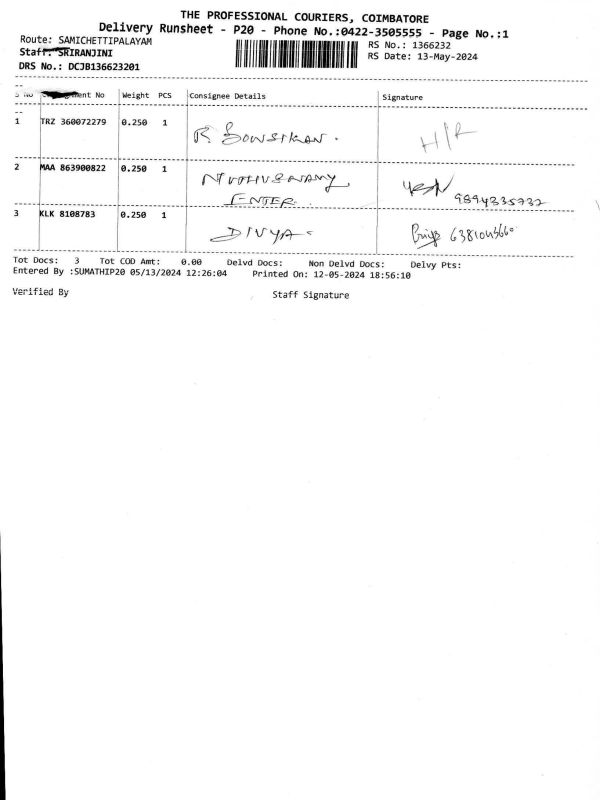 THE PROFESSIONAL COURIERS, COIMBATORE
Delivery Runsheet - P20 - Phone No.:0422-3505555 - Page No.:1
Route: SAMICHETTIPALAYAM
RS No.: 1366232
Staff: SRIRANJINI
RS Date: 13-May-2024
DRS No.: DCJB136623201
S No ment No Weight PCS Consignee Details Signature
1 TRZ 360072279 0.250 1 R. H/R
2 MAA 863900822 0.250 1
ENTER. 9894335732
3 KLK 8108783 0.250 1 DIVYA
Tot Docs: 3 Tot COD Amt: 0.00 Delvd Docs: Non Delvd Docs: Delvy Pts:
Entered By :SUMATHIP20 05/13/2024 12:26:04 Printed On: 12-05-2024 18:56:10
Verified By Staff Signature